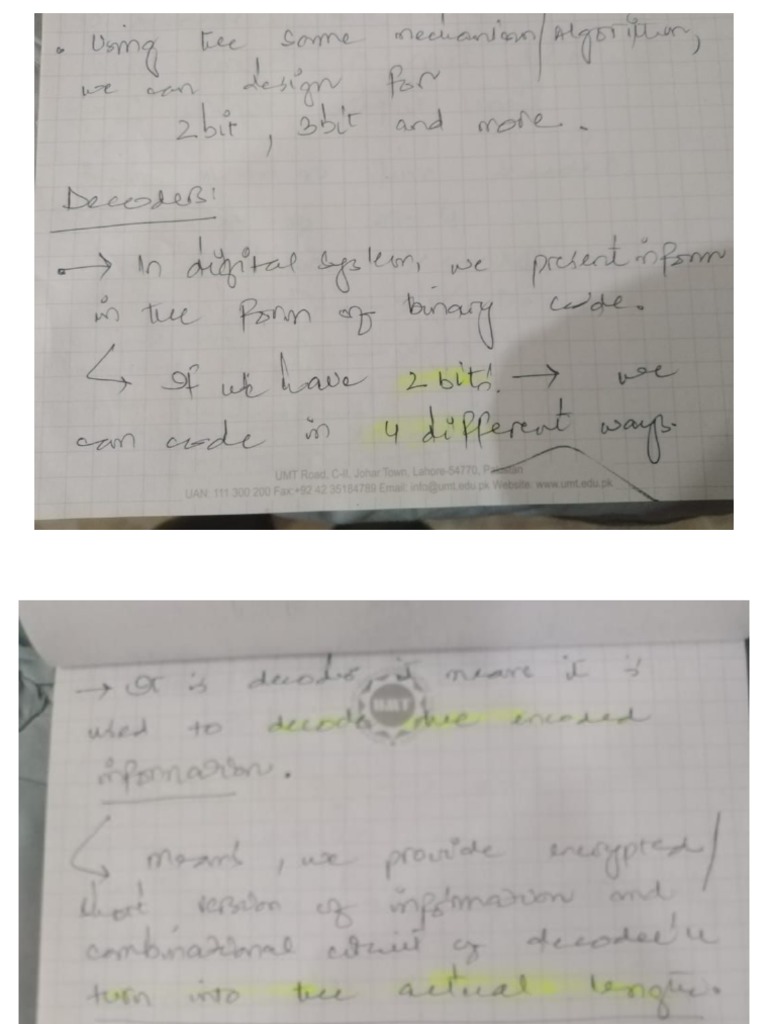 • Using the same mechanism/Algorithm,
we can design for
2bit, 3bit and more.
Decoders:
•→ In digital system, we present inform
in the form of binary code.
↳ If we have 2 bits. → we
can code in 4 different ways.
UMT Road, C-II, Johar Town, Lahore-54770, Pakistan
UAN: 111 300 200 Fax:+92 42 35184789 Email: info@umt.edu.pk Website: www.umt.edu.pk
→ It is decoder, it means it is
used to decode the encoded
information.
↳ means, we provide encrypted/
short version of information and
combinational circuit of decoder'll
turn into the actual length.
UMT